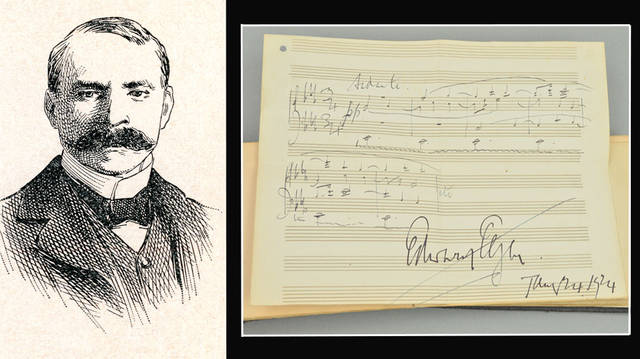 Andante.
pp
Edward Elgar
1924